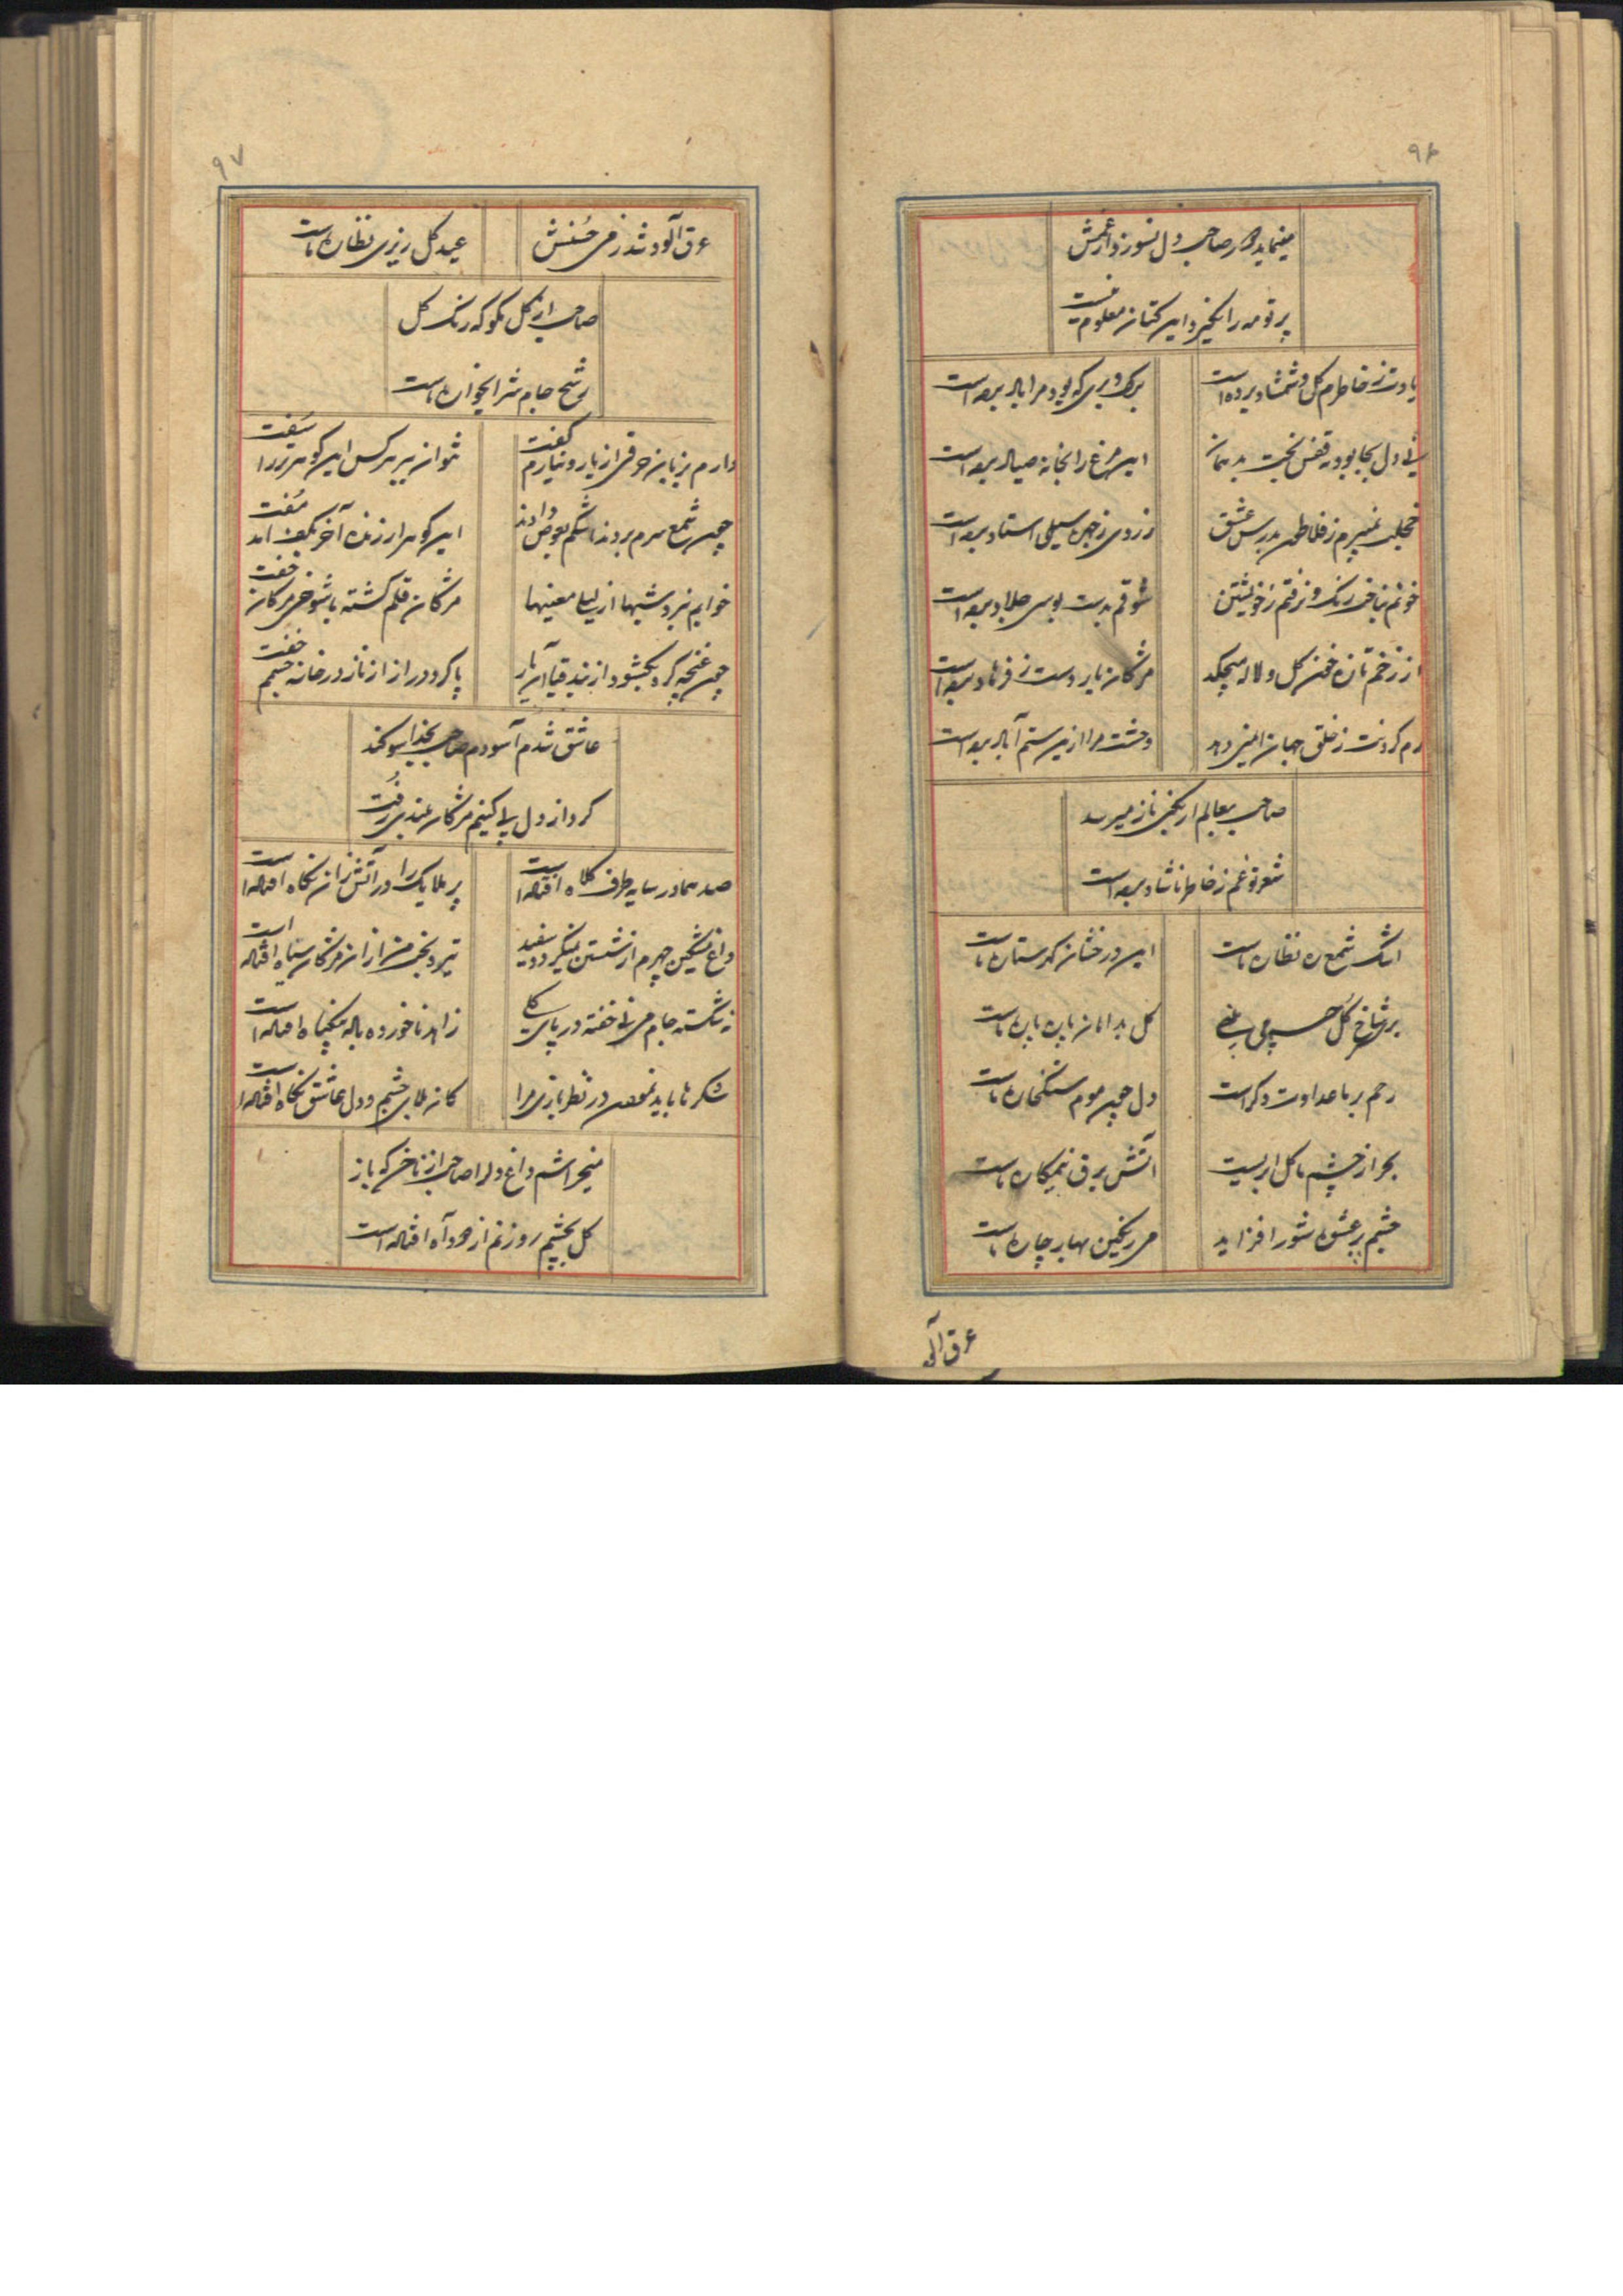 ۹۶
مینماید کار صاحب دل نسوزد از غمش
پرتو مه را نگیرد این کتان معلوم نیست
یادت ز خاطرم گل و شمشاد برده است
برگ و بری که بود مرا باد برده است
بی دل بجا بود به قفس
این مرغ را بخانه صیاد برده است
خجلت نمیبرم ز فلاطون بدرس عشق
زردی ز چهره سیلی استاد برده است
خونم بناخن رنگ و نرفتم ز خویشتن
شوقم بدست بوسی جلاد برده است
از زخم تازه خون گل و لاله میچکد
مژگان یار دست ز فرهاد برده است
رم کردنت ز خلق جهان ایمنی دهد
وحشت مرا ازین ستم آباد برده است
صاحب بعالم ار نکنی ناز میرسد
شعر تو غم ز خاطر ناشاد برده است
اشک شمع ره نظاره ماست
این درخشان گهر ستاره ماست
بر سر شاخ گل چه میباشی
گل بدامان پاره پاره ماست
رحم بر ما عداوت دگر است
دل چون موم سنگ خاره ماست
بحر از چشم ما گل ابریست
آتش برق نیمکاره ماست
چشم پر عشوه شور افزاید
می رنگین بهار چاره ماست
عرق آلود
۹۷
عرق آلود شد ز می حسنش
عید گل ریزی نظاره ماست
صاحب از گل مگو که رنگ گل
رشح جام شرابخواره ماست
دارم بزبان حرفی از یار و نیارم گفت
نتوان ببر هر کس این گوهر تر را سفت
چون شمع سرم بردند اشکم بعوض دادند
این گوهر ارزنده آخر بکف آمد مفت
خوابم نبرد شبها از لیلی معنیها
مژگان قلم گشته با شوخی مژگان خفت
چون غنچه پر گردد بگشود از بند قبا آن یار
پا کرد دراز از ناز در خانه چشمم خفت
عاشق شدم آسودم صاحب بخدا سوگند
گرد از دل بی کینم مژگان عندلیبی رفت
صد هما در سایه طرف کلاه افتاده است
پر ملایک را در آتش زان نگاه افتاده است
داغ مشکین چهرم از شستن نمیگردد سفید
تیره بختی من از آن مژگان سیاه افتاده است
نه شکسته جام می نی خفته در پای گلی
زاهد ناخورده باده بیگناه افتاده است
شکرها باید نمودن در نظربازی مرا
کان بلای چشم و دل عاشق نگاه افتاده است
میخراشم داغ دل را صاحب از ناخن که باز
گل بچشم روزنم از دود آه افتاده است